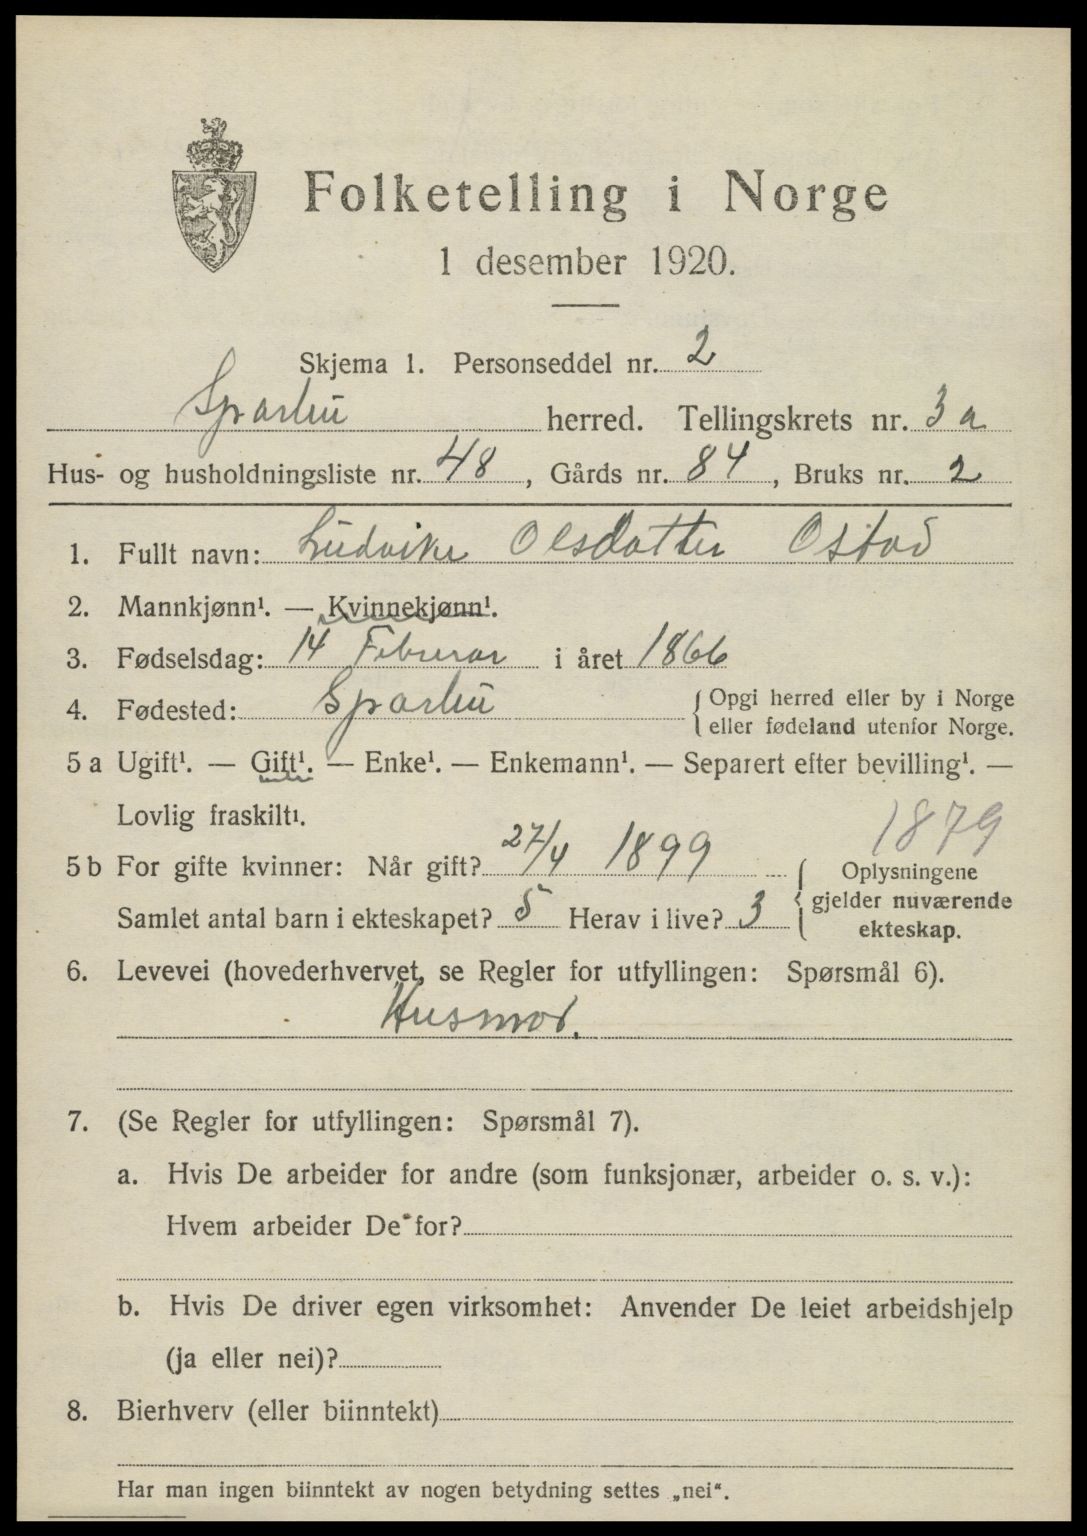 Folketelling i Norge
1 desember 1920.
Skjema 1. Personseddel nr. 2
Sparbu herred. Tellingskrets nr. 3a
Hus- og husholdningsliste nr. 48, Gårds nr. 84, Bruks nr. 2
1. Fullt navn: Ludvike Olsdatter Østad
2. Mannkjønn¹. — Kvinnekjønn¹.
3. Fødselsdag: 14 Februar i året 1866
4. Fødested: Sparbu {Opgi herred eller by i Norge
eller fødeland utenfor Norge.
5 a Ugift¹. — Gift¹. — Enke¹. — Enkemann¹. — Separert efter bevilling¹. —
Lovlig fraskilt¹.
1879
5 b For gifte kvinner: Når gift? 27/4 1899
Samlet antal barn i ekteskapet? 5 Herav i live? 3
{Oplysningene
gjelder nuværende
ekteskap.
6. Levevei (hovederhvervet, se Regler for utfyllingen: Spørsmål 6).
Husmor.
7. (Se Regler for utfyllingen: Spørsmål 7).
a. Hvis De arbeider for andre (som funksjonær, arbeider o. s. v.):
Hvem arbeider De for?
b. Hvis De driver egen virksomhet: Anvender De leiet arbeidshjelp
(ja eller nei)?
8. Bierhverv (eller biinntekt)
Har man ingen biinntekt av nogen betydning settes „nei“.